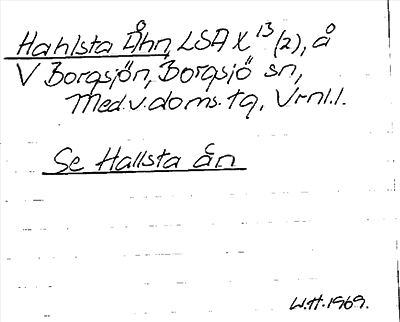 Hahlsta Åhn, LSA X 13 (2), å
V Borgsjön, Borgsjö sn,
Med.v.doms.tg, Vrnl.l.
Se Hallsta ån
W.H.1969.